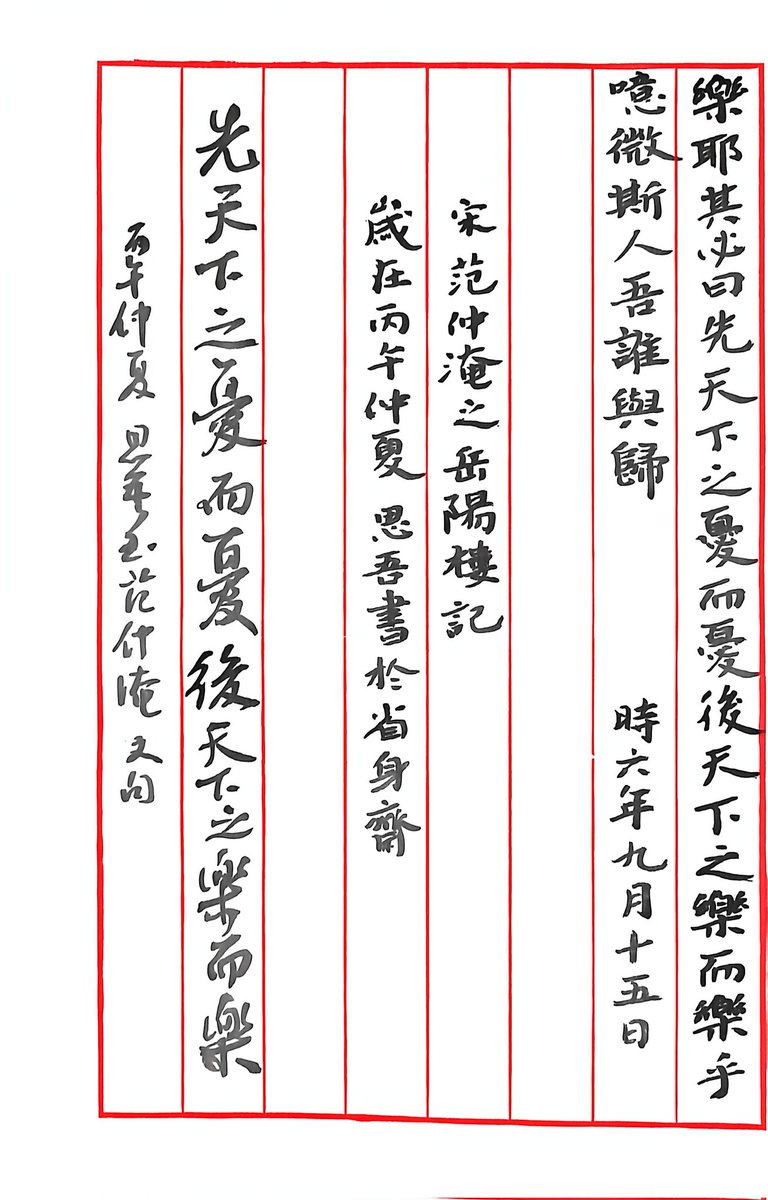 樂耶其必曰先天下之憂而憂後天下之樂而樂乎
噫微斯人吾誰與歸 時六年九月十五日
宋范仲淹之岳陽樓記
歲在丙午仲夏 思吾書於省身齋
先天下之憂而憂後天下之樂而樂
丙午仲夏 思吾書范仲淹文句